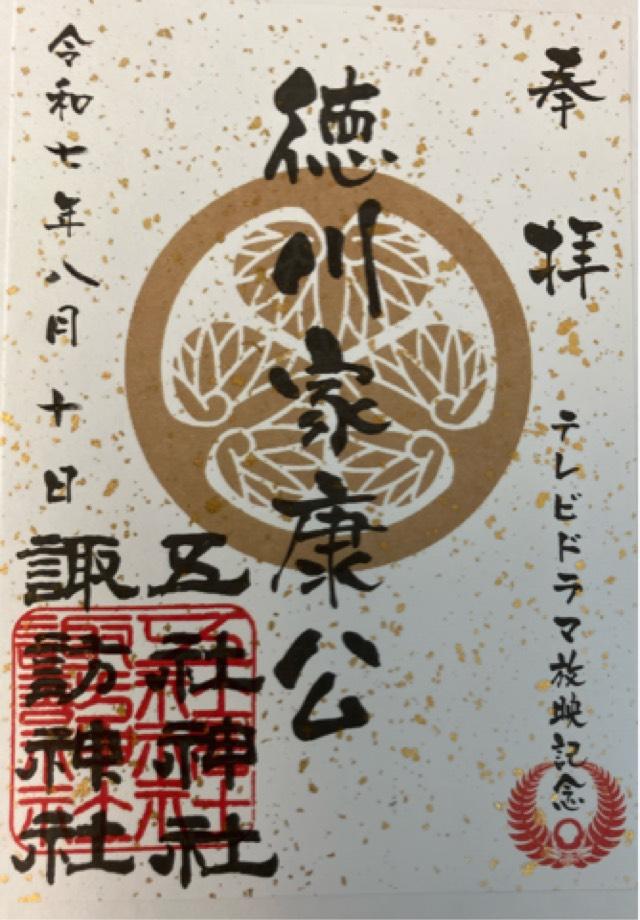 奉拝
テレビドラマ放映記念
徳川家康公
五社神社
諏訪神社
令和七年八月十日